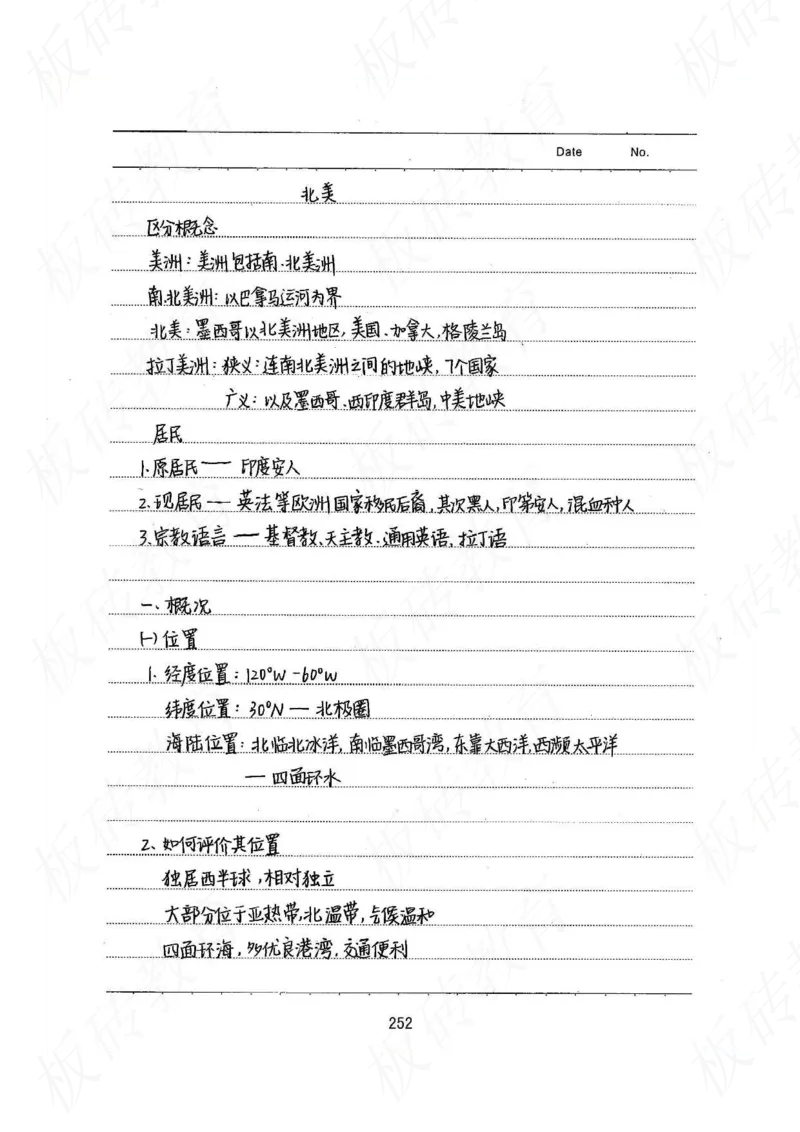 Date No.
北美
区分概念
美洲：美洲包括南、北美洲
南.北美洲：以巴拿马运河为界
北美：墨西哥以北美洲地区，美国、加拿大，格陵兰岛
拉丁美洲：狭义：连南北美洲之间的地峡，7个国家
广义：以及墨西哥、西印度群岛，中美地峡
居民
1.原居民 —— 印度安人
2.现居民 —— 英法等欧洲国家移民后裔，其次黑人，印第安人，混血种人
3.宗教语言 — 基督教、天主教、通用英语，拉丁语
一、概况
(一)位置
1. 经度位置：120°W -60°W
纬度位置：30°N — 北极圈
海陆位置：北临北冰洋，南临墨西哥湾，东靠大西洋，西濒太平洋
— 四面环水
2、如何评价其位置
独居西半球，相对独立
大部分位于亚热带，北温带，气候温和
四面环海，多优良港湾，交通便利
252
板砖教育